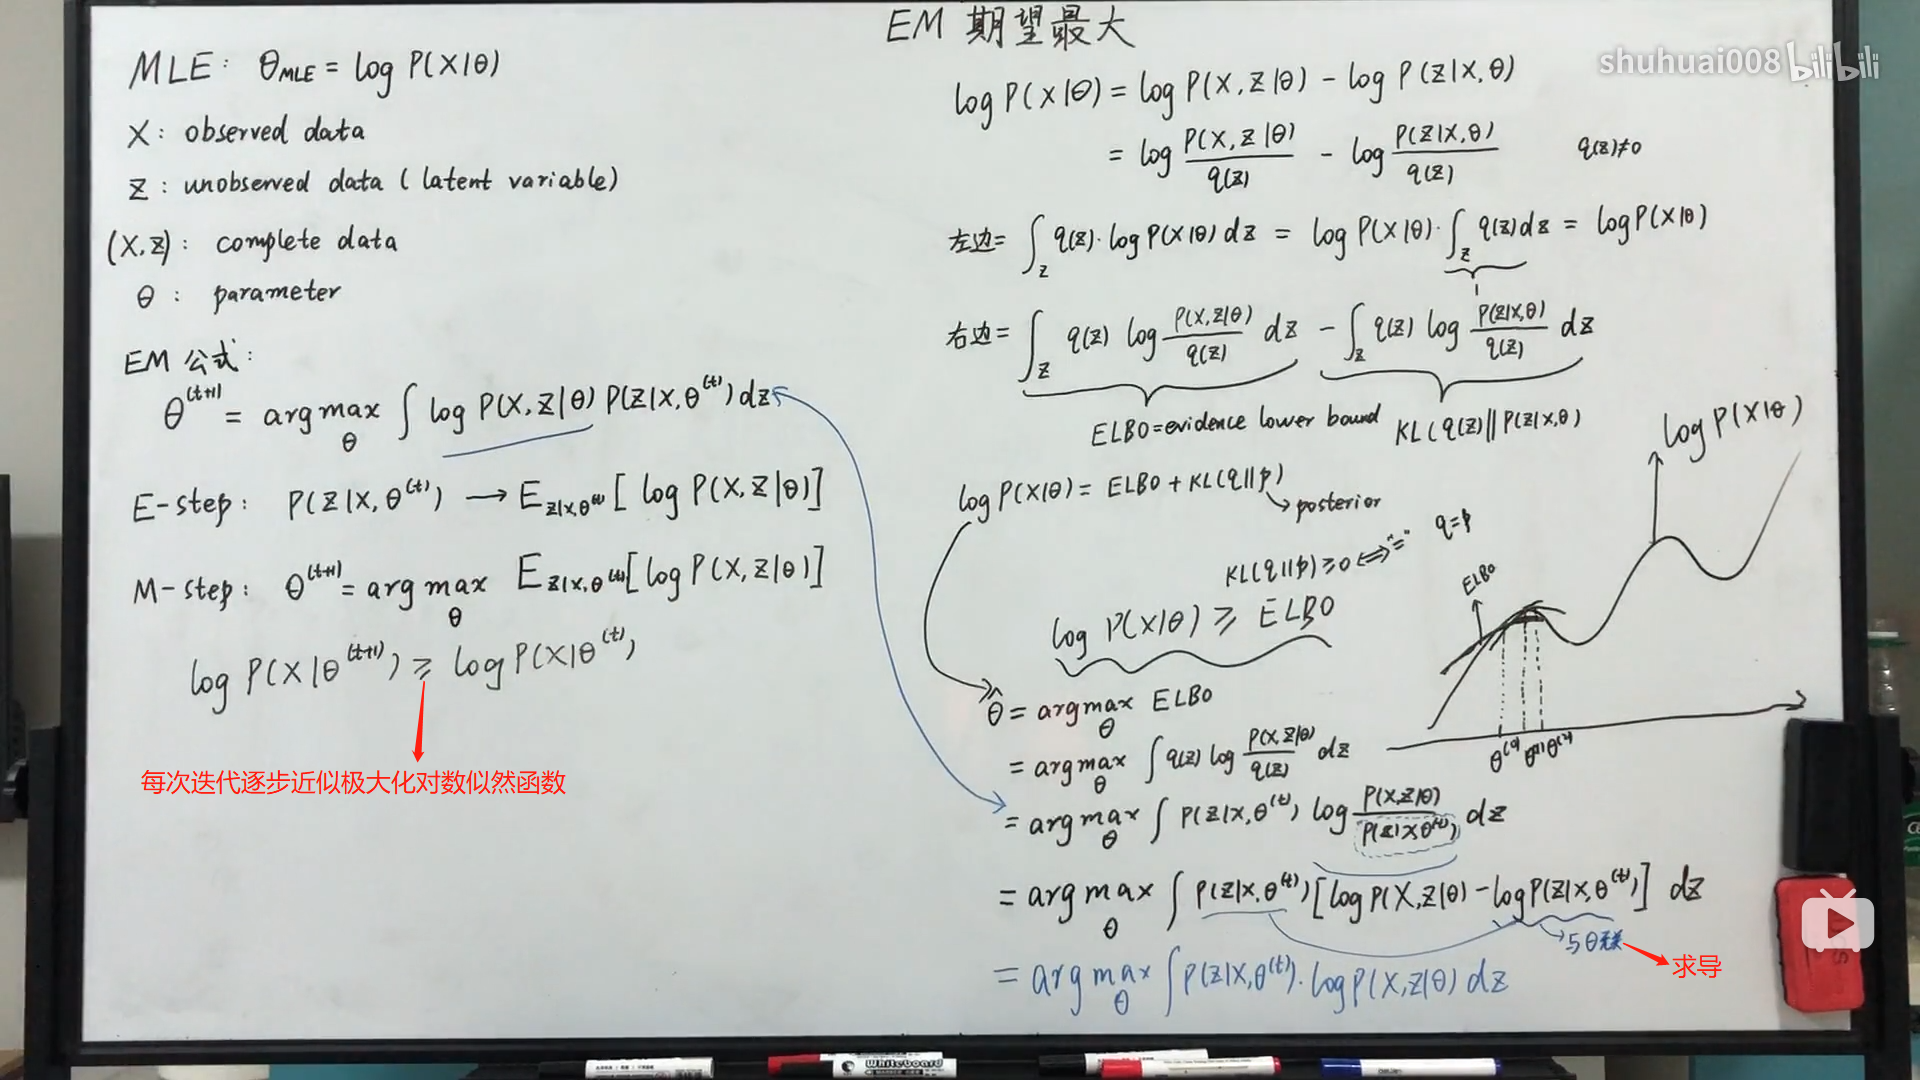 EM 期望最大
shuhuai008 bilibili
MLE: θ_MLE = log P(X|θ)
X: observed data
Z: unobserved data (latent variable)
(X,Z): complete data
θ: parameter
EM 公式:
θ^(t+1) = arg max_θ ∫ log P(X,Z|θ) P(Z|X,θ^(t)) dz
E-step: P(Z|X,θ^(t)) → E_{Z|X,θ^(t)} [log P(X,Z|θ)]
M-step: θ^(t+1) = arg max_θ E_{Z|X,θ^(t)} [log P(X,Z|θ)]
log P(X|θ^(t+1)) ⩾ log P(X|θ^(t))
每次迭代逐步近似极大化对数似然函数
log P(X|θ) = log P(X,Z|θ) - log P(Z|X,θ)
= log P(X,Z|θ)/q(z) - log P(Z|X,θ)/q(z) q(z)≠0
左边= ∫_z q(z)·log P(X|θ) dz = log P(X|θ)·∫_z q(z)dz = log P(X|θ)
1
右边= ∫_z q(z) log P(X,Z|θ)/q(z) dz - ∫_z q(z) log P(Z|X,θ)/q(z) dz
ELBO=evidence lower bound KL(q(z)||P(Z|X,θ)
log P(X|θ) = ELBO + KL(q||p)
posterior
KL(q||p)⩾0 ⟺ "=" q=p
log P(X|θ) ⩾ ELBO
log P(X|θ)
ELBO
θ^(0) θ^(1) θ^(2)
θ̂ = arg max_θ ELBO
= arg max_θ ∫ q(z) log P(X,Z|θ)/q(z) dz
= arg max_θ ∫ P(Z|X,θ^(t)) log P(X,Z|θ)/P(Z|X,θ^(t)) dz
= arg max_θ ∫ P(Z|X,θ^(t)) [log P(X,Z|θ) - log P(Z|X,θ^(t))] dz
与θ无关
求导
= arg max_θ ∫ P(Z|X,θ^(t))·log P(X,Z|θ) dz
WhiteBoard